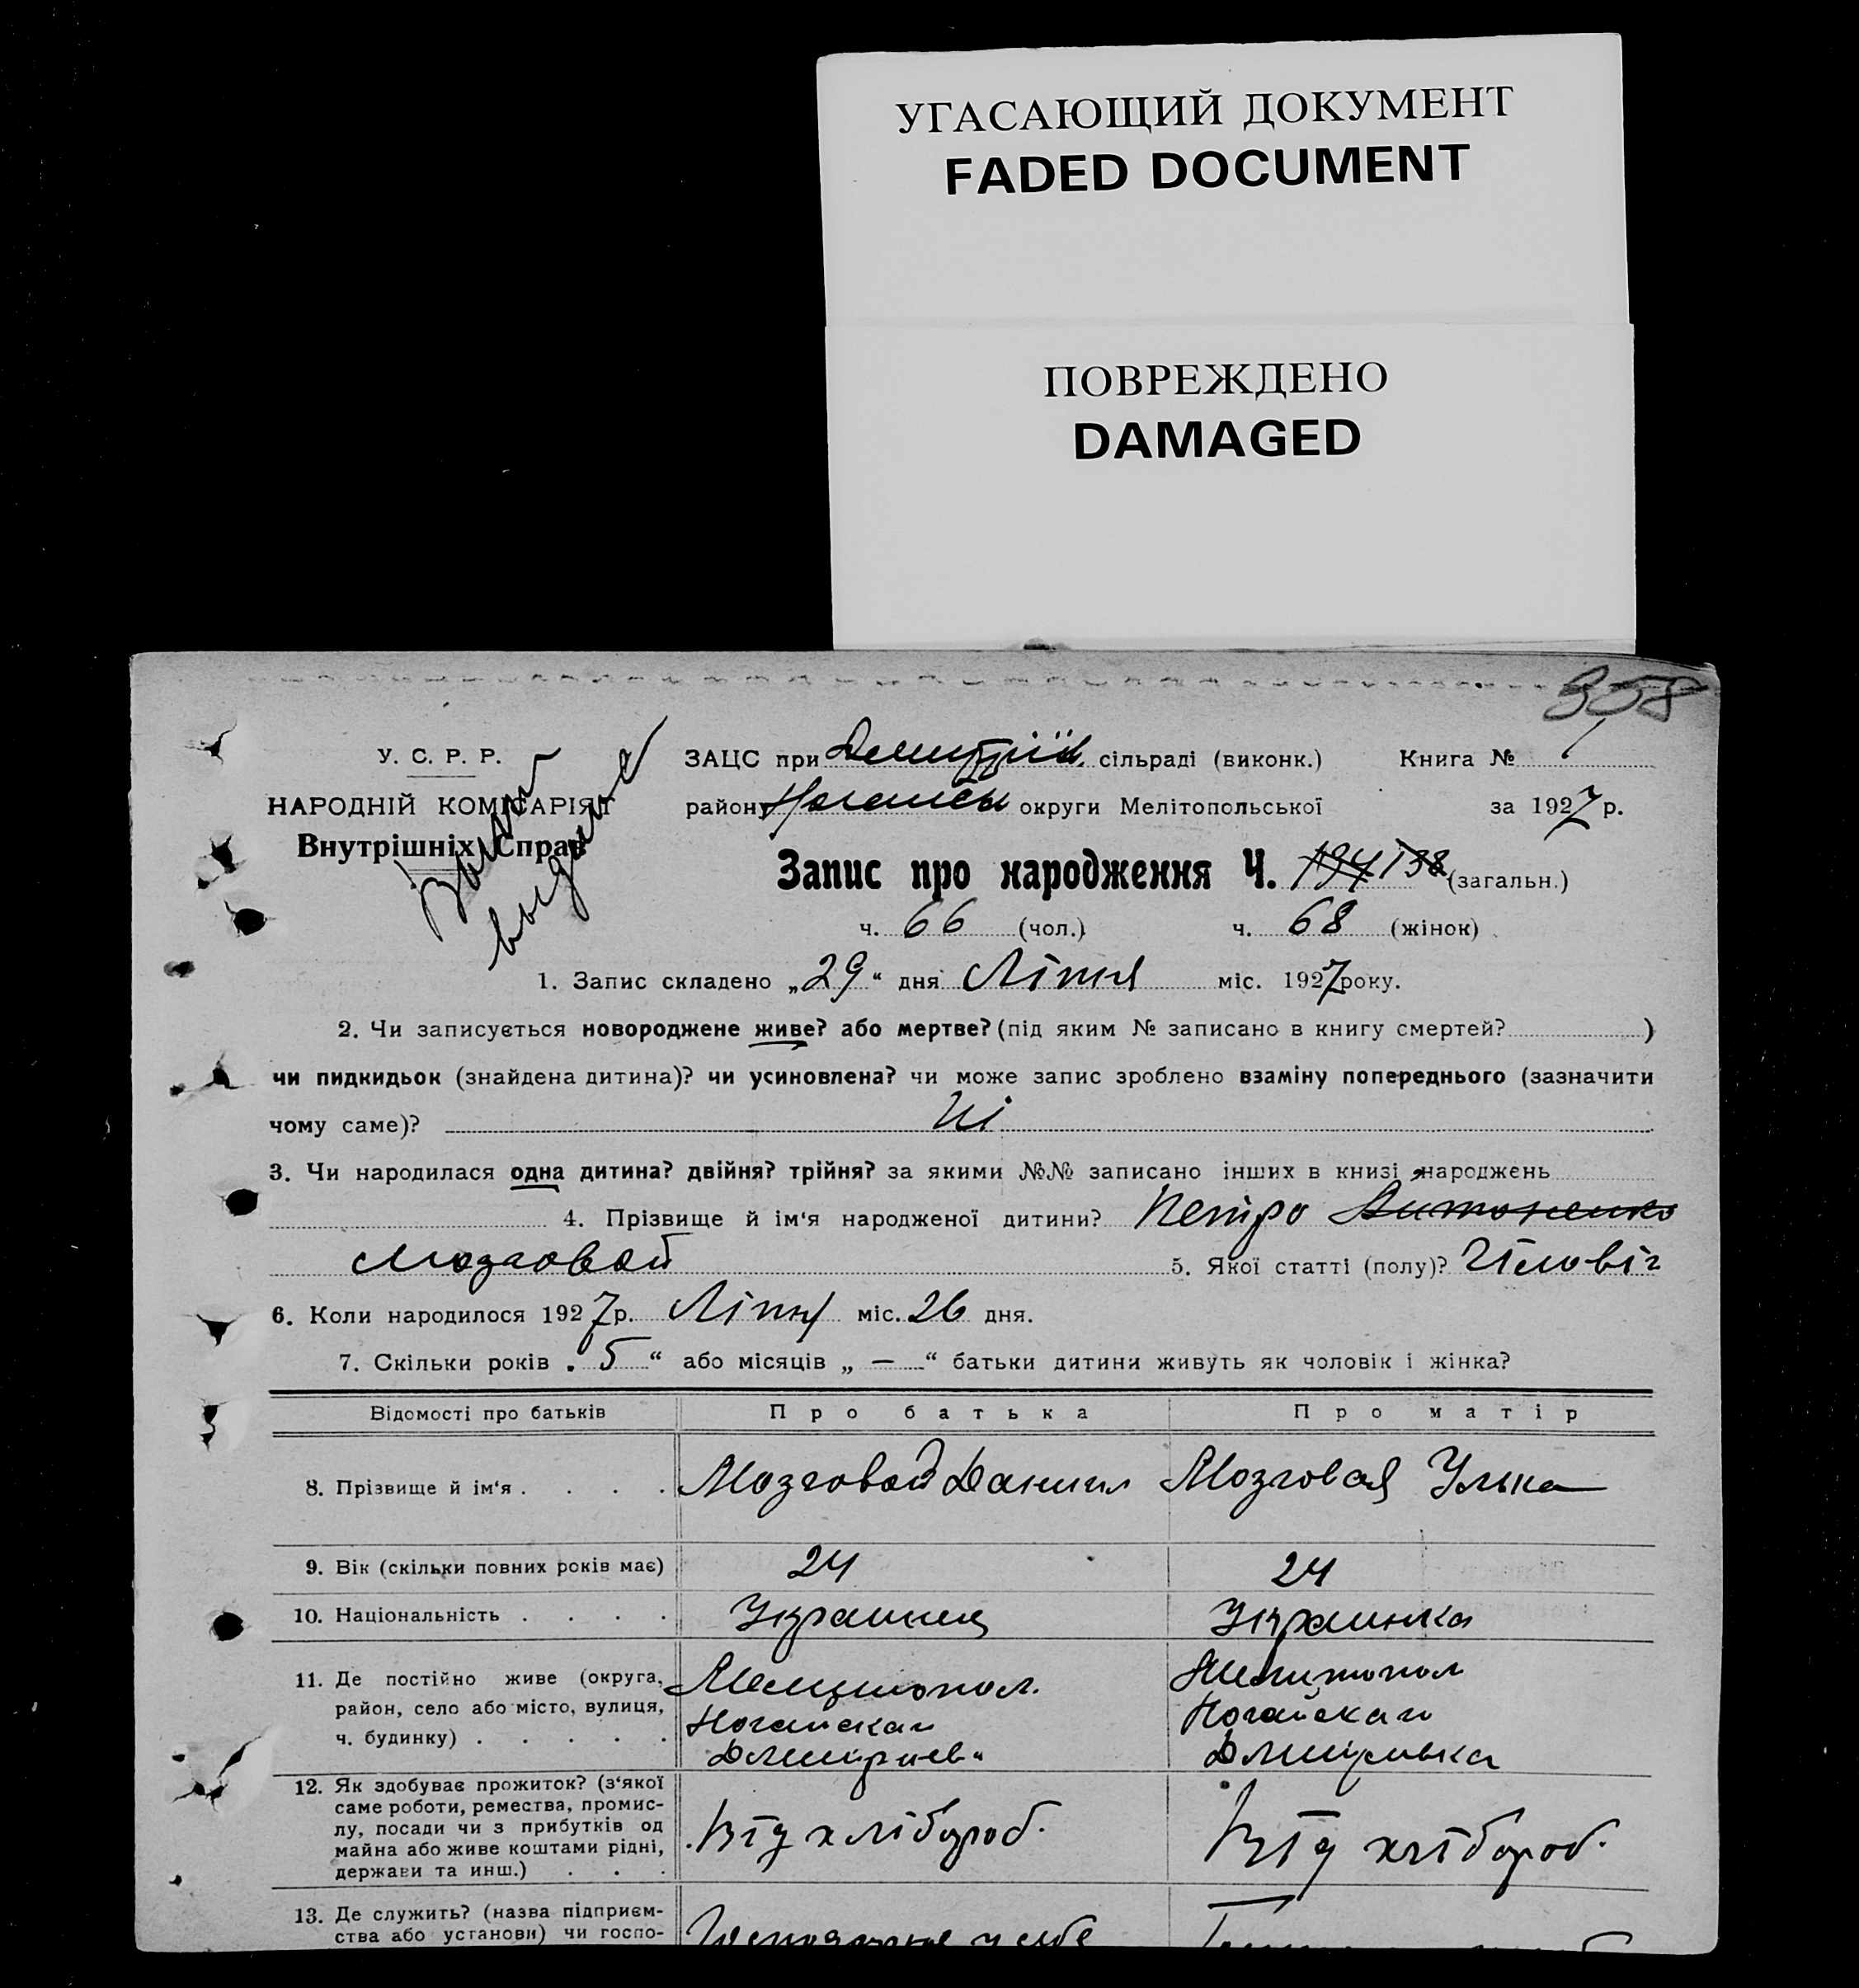 УГАСАЮЩИЙ ДОКУМЕНТ
FADED DOCUMENT
ПОВРЕЖДЕНО
DAMAGED
358
У. С. Р. Р.
НАРОДНІЙ КОМІСАРІЯТ
Внутрішніх Справ
ЗАЦС при Демитрїїв. сільраді (виконк.) Книга № 1
району Ногайськ округи Мелітопольської за 1927 р.
Запис про народження Ч. 134 138 (загальн.)
ч. 66 (чол.) ч. 68 (жінок)
1. Запис складено „29“ дня Ліпня міс. 1927 року.
2. Чи записується новороджене живе? або мертве? (під яким № записано в книгу смертей? )
чи пидкидьок (знайдена дитина)? чи усиновлена? чи може запис зроблено взаміну попереднього (зазначити
чому саме)? Ні
3. Чи народилася одна дитина? двійня? трійня? за якими №№ записано інших в книзі народжень
4. Прізвище й ім'я народженої дитини? Петро Антоненко
Мозговой 5. Якої статті (полу)? Чіловіч
6. Коли народилося 1927 р. Ліпня міс. 26 дня.
7. Скільки років „ 5 “ або місяців „ — “ батьки дитини живуть як чоловік і жінка?
Відомості про батьків Про батька Про матір
8. Прізвище й ім'я . . . . Мозговой Даниил Мозговая Улька
9. Вік (скільки повних років має) 24 24
10. Національність . . . . Украинец Украинка
11. Де постійно живе (округа, Мелитопол. Мелитопол
район, село або місто, вулиця, Ногайскаи Ногайскаи
ч. будинку) . . . . . Дмитриев" Дмитривка
12. Як здобуває прожиток? (з'якої
саме роботи, ремества, промис-
лу, посади чи з прибутків од Від хлібороб. Від хлібороб.
майна або живе коштами рідні,
держави та инш.) . . .
13. Де служить? (назва підприєм-
ства або установи) чи госпо-